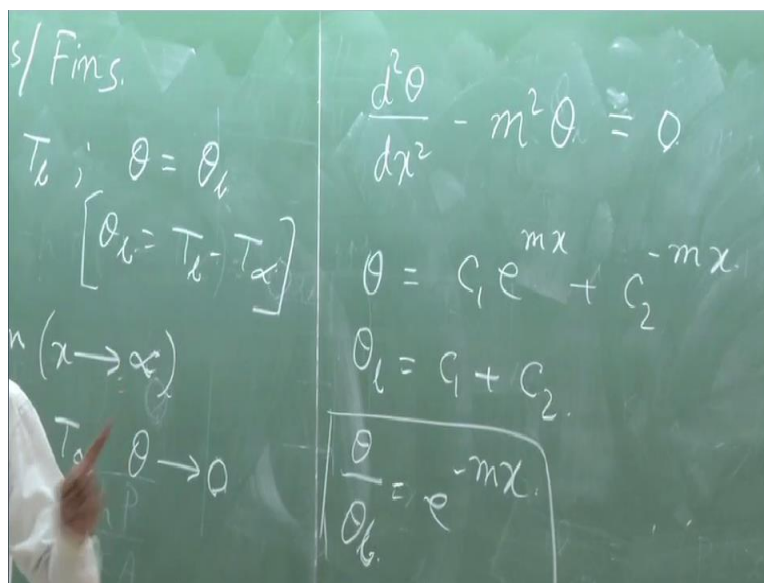 s/Fins.
T_b ; θ = θ_b
[θ_b = T_b - T_∝]
n (x → ∝)
T_∝ θ → 0
d²θ/dx² - m²θ = 0
θ = C₁ e^{mx} + C₂^{-mx}.
θ_b = C₁ + C₂.
θ/θ_b = e^{-mx}.